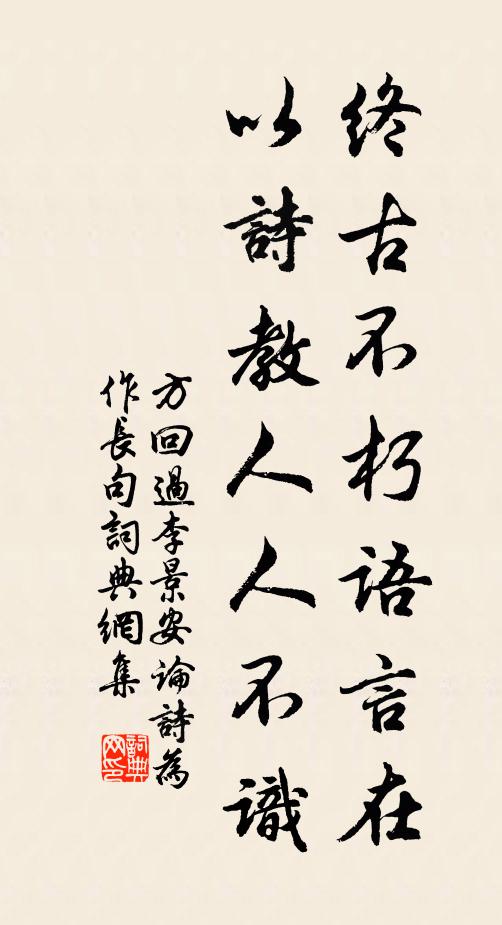 終古不朽語言在
以詩教人人不識
方回過李景安論詩為
作長句詞典網集
詞典網印